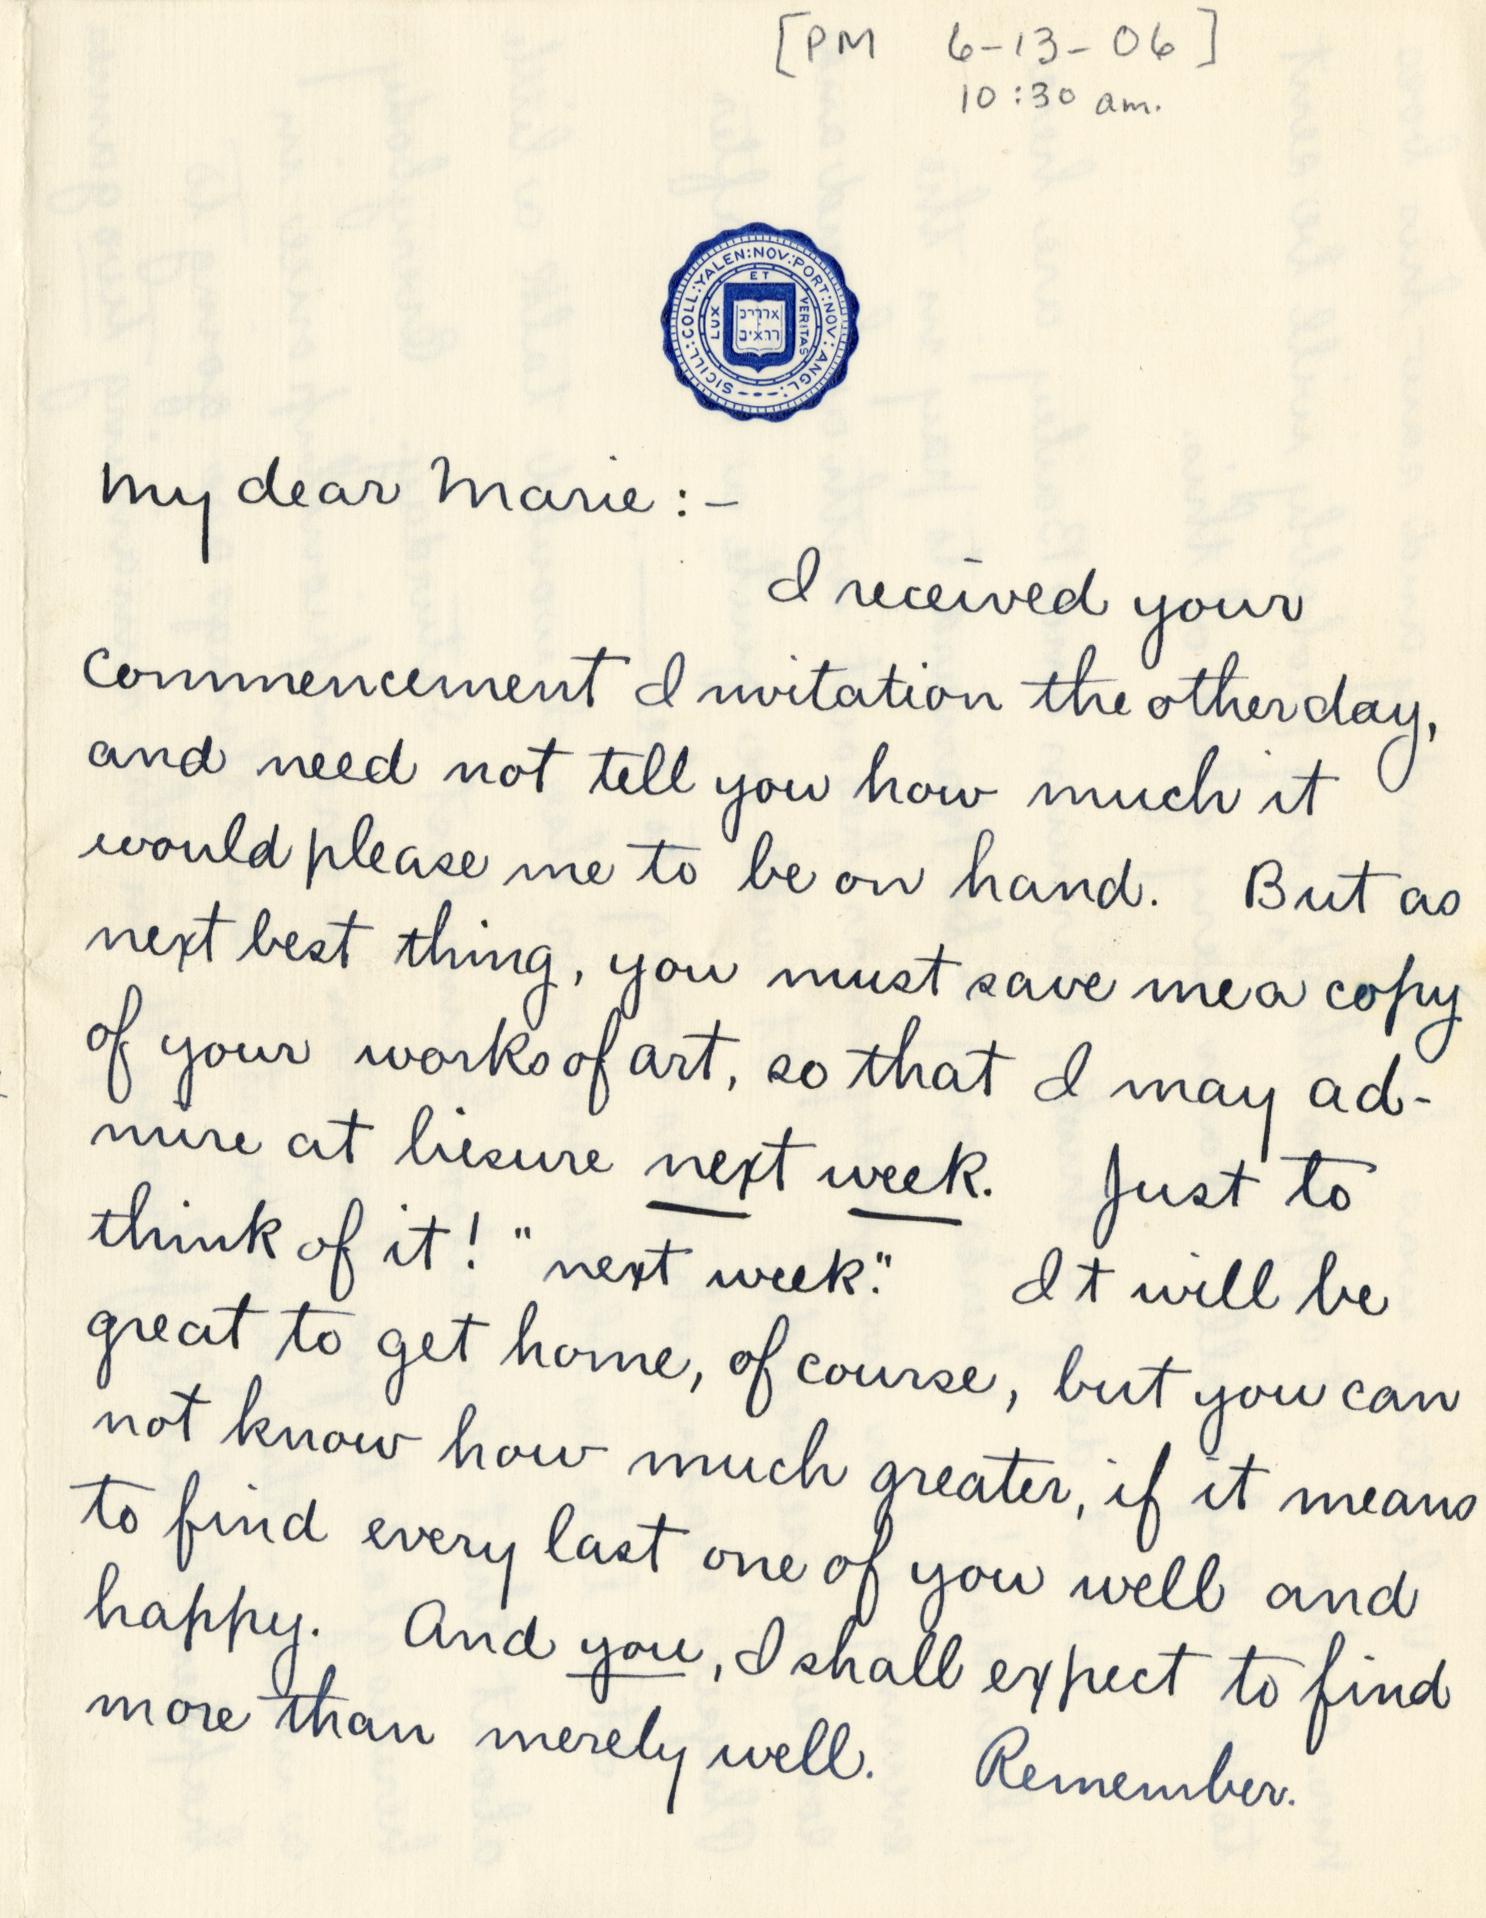 [PM 6-13-06]
10:30 am.
SIGILL:COLL:YALEN:NOV:PORT:NOV:ANGL:
LUX ET VERITAS
My dear Marie:-
I received your
Commencement Invitation the other day,
and need not tell you how much it
would please me to be on hand. But as
next best thing, you must save me a copy
of your works of art, so that I may ad-
mire at liesure next week. Just to
think of it! "next week." It will be
great to get home, of course, but you can
not know how much greater, if it means
to find every last one of you well and
happy. And you, I shall expect to find
more than merely well. Remember.